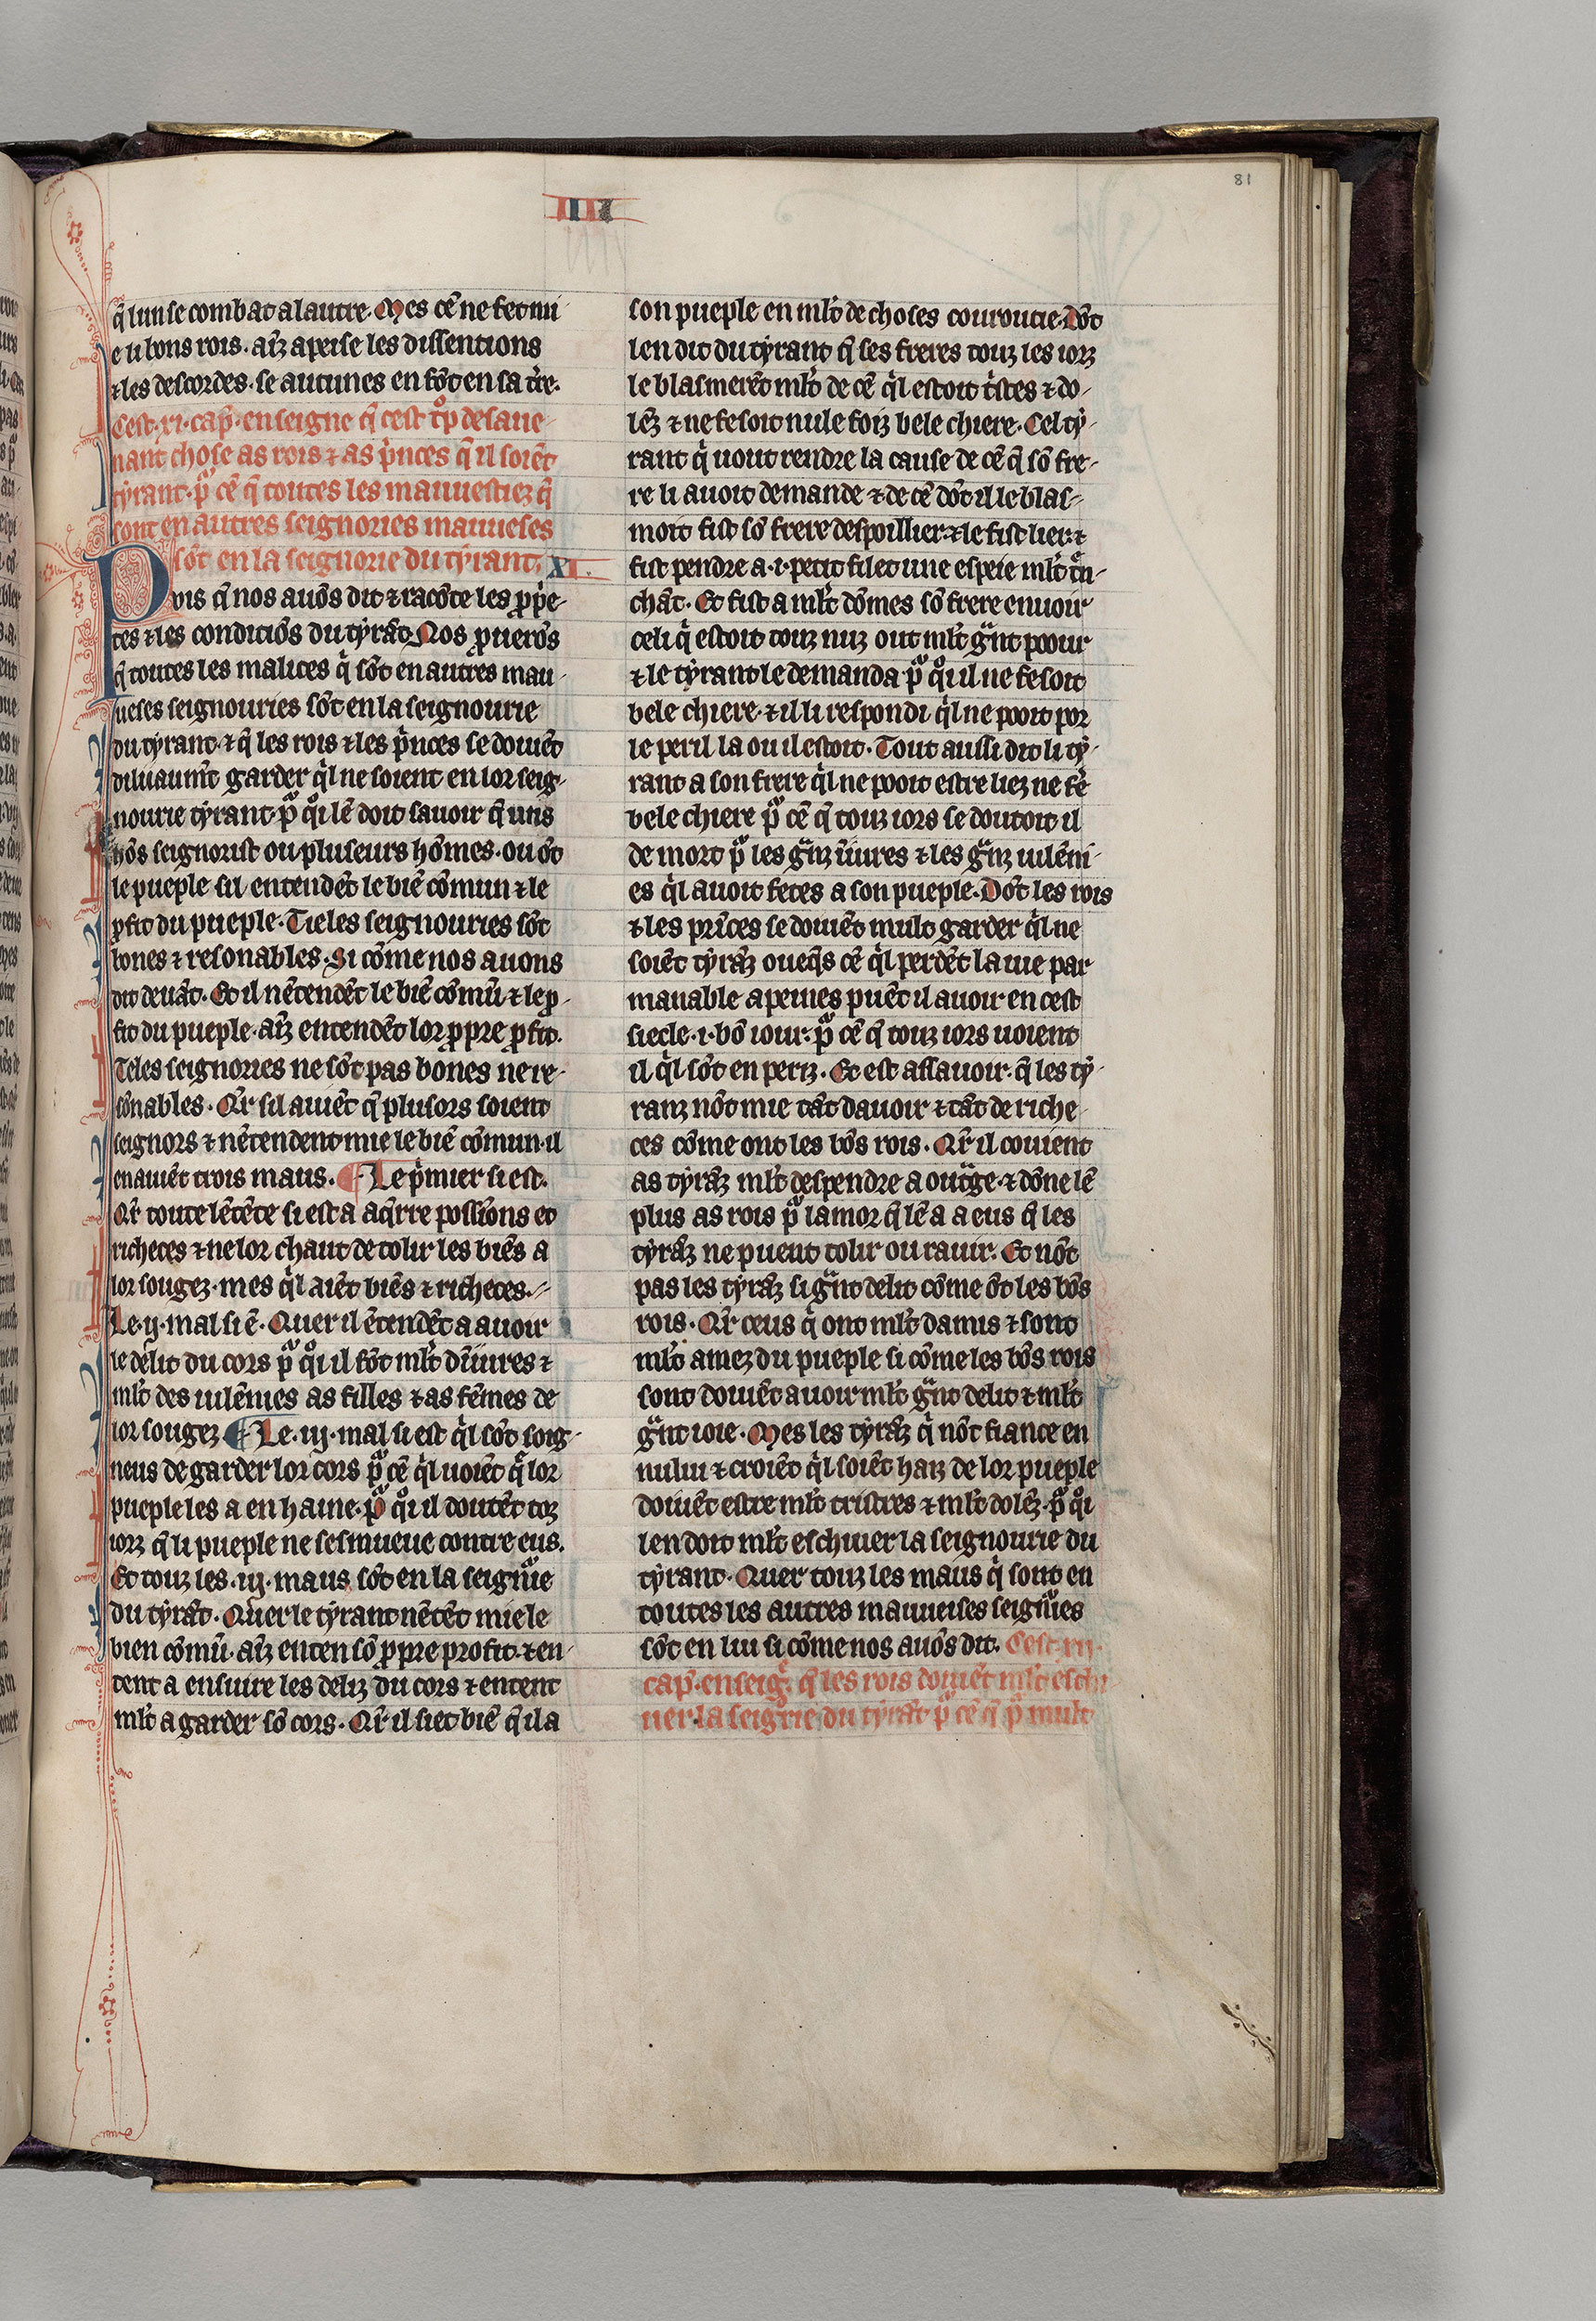 81
IIII
q̃ lun se combat a lautre. Mes cẽ ne fet mi
e li bons rois. aĩz apeise les dissentions
⁊ les descordes. se aucunes en sõt en sa t̃re.
Cest .xi. cap̃. enseigne q̃ cest tͦp desaue-
nant chose as rois ⁊ as p̃nces q̃ il soiẽt
tyrant. pͣ cẽ q̃ toutes les mauuestiez q̃
sont en autres seignories mauueses
sõt en la seignorie du tyrant. XI.
Puis q̃ nos auõs dit ⁊ racõte les ꝓpͥe-
tes ⁊ les conditiõs du tyrãt. Nos ꝓuerõs
q̃ toutes les malices qͥ sõt en autres mau-
ueses seignouries sõt en la seignourie
du tyrant. ⁊ q̃ les rois ⁊ les p̃nces se doiuẽt
diliiaum̃t garder qͥl ne soient en lor seig-
nourie tyrant. pͣ qͦi lẽ doit sauoir q̃ uns
hõs seignorist ou pluseurs hõmes. ou õt
le pueple sil entendẽt le biẽ cõmun ⁊ le
ꝓfit du pueple. Tieles seignouries sõt
bones ⁊ resonables. Si cõme nos auons
dit deuãt. Et il nẽtendẽt le biẽ cõmũ ⁊ le ꝓ-
fit du pueple. aĩz entendẽt lor ꝓpre ꝓfit.
Teles seignories ne sõt pas bones ne re-
sõnables. Qr̃ sil auiẽt q̃ plusors soient
seignors ⁊ nẽtendent mie le biẽ cõmun. il
en auiẽt trois maus. ¶ Le p̃mier si est.
Qr̃ toute lẽtẽte si est a aq̃rre possiõns et
richeces ⁊ ne lor chaut de tolir les biẽs a
lor sougez. mes qͥl aiẽt biẽs ⁊ richeces.
Le .ij. mal si ẽ. Quer il ẽtendẽt a auoir
le delit du cors pͣ qͦi il fõt ml̃t dĩiures ⁊
ml̃t des uilẽnies as filles ⁊ as fẽmes de
lor sougez. ¶ Le .iij. mal si est qͥl sõt soig-
neus de garder lor cors pͣ cẽ qͥl uoiẽt q̃ lor
pueple les a en haine. pͣ qͦi il doutẽt toz
iorz q̃ li pueple ne sesmueue contre eus.
Et touz les .iij. maus sõt en la seigñie
du tyrãt. Quer le tyrant nẽtẽt mie le
bien cõmũ. aĩz enten sõ ꝓpre profit. ⁊ en-
tent a ensuire les deliz du cors ⁊ entent
ml̃t a garder sõ cors. Qr̃ il siet biẽ q̃ il a
son pueple en ml̃t de choses couroucie. Dõt
len dit du tyrant q̃ ses freres touz les iorz
le blasmerẽt ml̃t de cẽ qͥl estoit tͥstes ⁊ do-
lẽz ⁊ ne fesoit nule foiz bele chiere. Cel ty-
rant qͥ uout rendre la cause de cẽ q̃ sõ fre-
re li auoit demande ⁊ de cẽ dõt il le blas-
moit fist sõ frere despoillier. ⁊ le fist lier. ⁊
fist pendre a .i. petit filet une espeie ml̃t tͣn-
chãt. Et fist a ml̃t dõmes sõ frere enuoir
celi qͥ estoit touz nuz out ml̃t gͣnt poour
⁊ le tyrant le demanda pͣ qͦi il ne fesoit
bele chiere. ⁊ il li respondi qͥl ne pooit por
le peril la ou il estoit. Tout aussi dit li ty-
rant a son frere qͥl ne pooit estre liez ne fẽ
bele chiere pͣ cẽ q̃ touz iors se doutoit il
de mort pͣ les gͣnz iñiures ⁊ les gͣnz uilẽni-
es qͥl auoit fetes a son pueple. Dõt les rois
⁊ les prĩces se doiuẽt mult garder qͥl ne
soiẽt tyrãz oueq̃s cẽ qͥl perdẽt la uie par
manable a peines puẽt il auoir en cest
siecle .i. bõ iour. pͣ cẽ q̃ touz iors uoient
il qͥl sõt en periz. Et est assauoir. q̃ les ty-
ranz nõt mie tãt dauoir ⁊ tãt de riche-
ces cõme ont les bõs rois. Qr̃ il couient
as tyrãz ml̃t despendre a outͣge. ⁊ dõne lẽ
plus as rois pͣ lamor q̃ lẽ a a eus q̃ les
tyrãz ne puent tolir ou rauir. Et nõt
pas les tyrãz si gͣnt delit cõme õt les bõs
rois. Qr̃ ceus qͥ ont ml̃t damis ⁊ sont
ml̃t amez du pueple si cõme les bõs rois
sont doiuẽt auoir ml̃t gͣnt delit ⁊ ml̃t
gͣnt ioie. Mes les tyrãz qͥ nõt fiance en
nului ⁊ croiẽt qͥl soiẽt haiz de lor pueple
doiuẽt estre ml̃t tristres ⁊ ml̃t dolẽz. pͣ qͦi
len doit ml̃t eschiuer la seignourie du
tyrant. Quer touz les maus qͥ sont en
toutes les autres mauueises seigñies
sõt en lui si cõme nos auõs dit. Cest .xij.
cap̃. enseig̃. q̃ les rois doiuẽt ml̃t eschi
uer la seigr̃ie du tyrãt pͣ cẽ q̃ pͣ mult